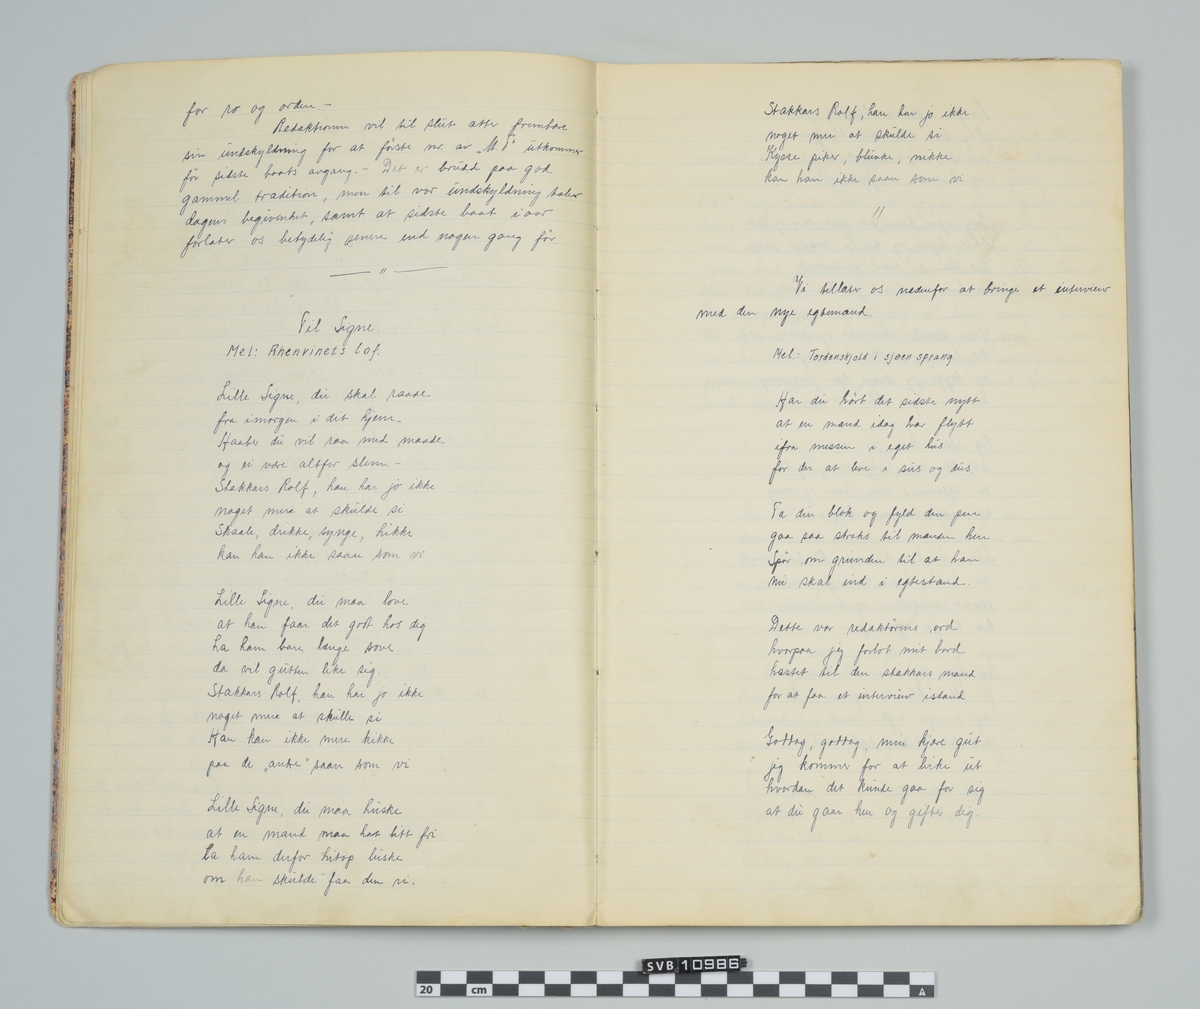 for ro og orden.-
Redaktionen vil til slut atter frembære
sin undskyldning for at første nr av „M.T" utkommer
før sidste baats avgang.- Det er brudd paa god
gammel tradition, men til vor undskyldning taler
dagens begivenhet, samt at sidste baat i aar
forlater os betydelig senere end nogen gang før.
"
Til Signe.
Mel: Rhenvinets lof.
Lille Signe, du skal raade
fra imorgen i det hjem.
Haaber du vil raa med maade
og ei være altfor slem.-
Stakkars Rolf, han har jo ikke
noget mere at skulde si
Skaale, drikke, synge, hikke
kan han ikke saan som vi
Lille Signe, du maa love
at han faar det godt hos dig
La ham bare længe sove
da vil gutten like sig.
Stakkars Rolf, han har jo ikke
noget mere at skulle si
Han kan ikke mere kikke
paa de „andre" saan som vi
Lille Signe, du maa huske
at en mand maa hat litt fri
La ham derfor hitop
om han skulde faa den ri.
Stakkars Rolf, han har jo ikke
noget mer at skulde si
Kysse piker, blunke, nikke
kan han ikke saan som vi
"
Vi tillater os nedenfor at bringe et interview
med den nye egtemand.
Mel.: Tordenskjold i sjøen sprang
Har du hørt det sidste nytt
at en mand idag har flytt
ifra messen i eget hus
for der at leve i sus og dus.
Ta din blok og fyld din pen
gaa saa straks til manden hen
Spør om grunden til at han
nu skal ind i egtestand.
Dette var redaktørens ord
hvorpaa jeg forlot mit bord
hastet til den stakkars mand
for at faa et interview istand
Goddag, goddag, min kjære gut
jeg kommer for at finde ut
hvordan det kunde gaa for sig
at du gaar hen og gifter dig.
SVB 10986
20 cm
A